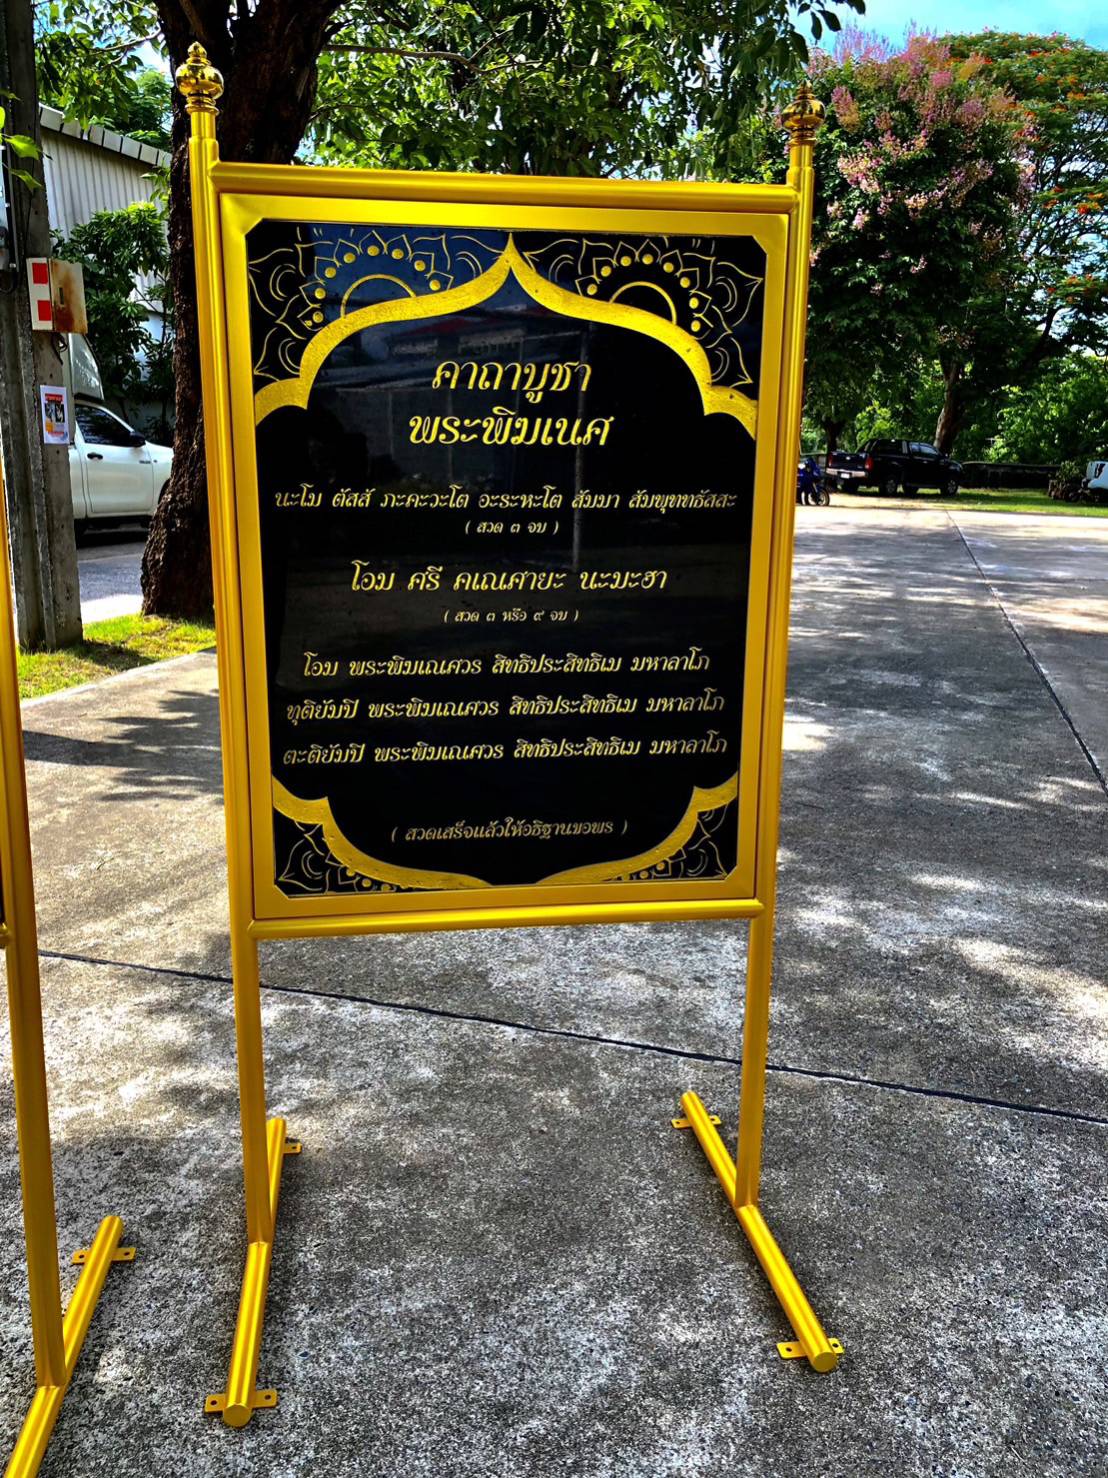 คาถาบูชา
พระพิฆเนศ
นะโม ตัสสั ภะคะวะโต อะระหะโต สัมมา สัมพุททธัสสะ
( สวด ๓ จบ )
โอม ศรี คเณศายะ นะมะฮา
( สวด ๓ หรือ ๙ จบ )
โอม พระพิฆเณศวร สิทธิประสิทธิเม มหาลาโภ
ทุติยัมปิ พระพิฆเณศวร สิทธิประสิทธิเม มหาลาโภ
ตะติยัมปิ พระพิฆเณศวร สิทธิประสิทธิเม มหาลาโภ
( สวดเสร็จแล้วให้อธิฐานขอพร )